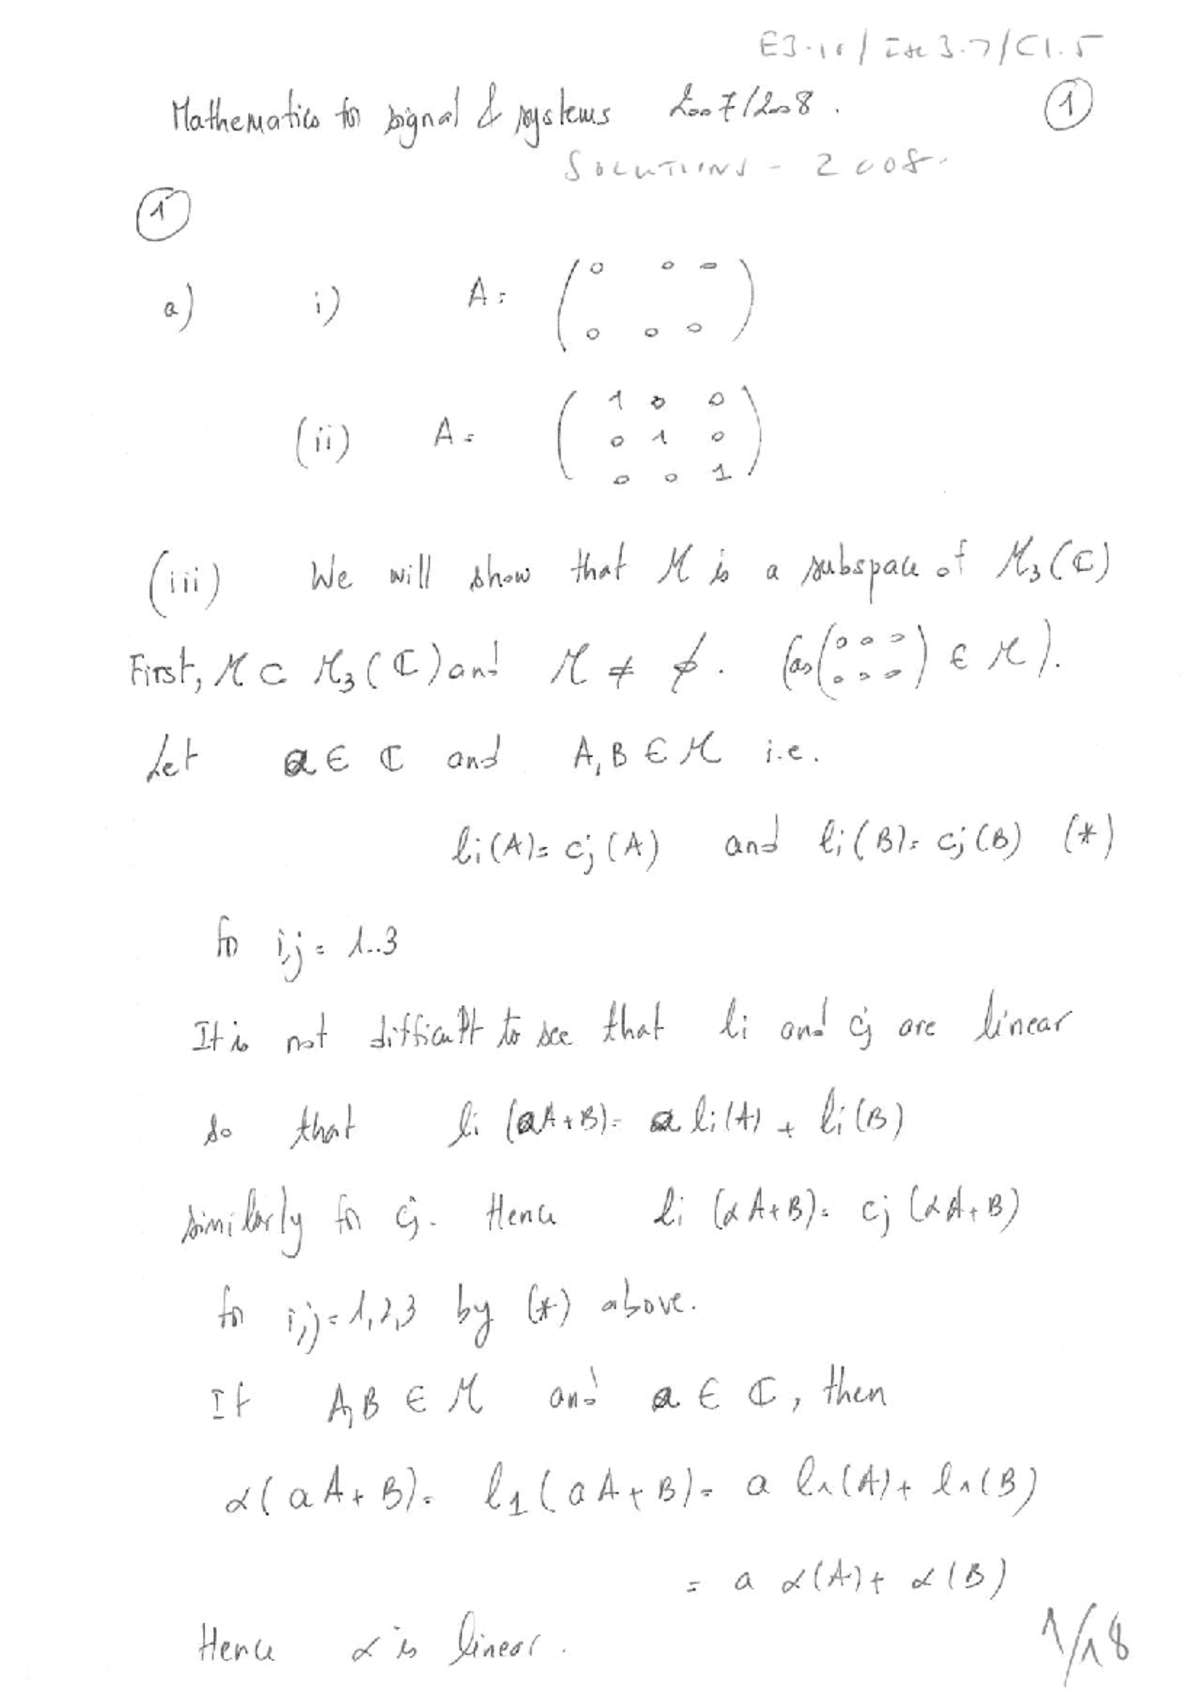 E3.10/Ise 3.7/C1.5
Mathematics for signal & systems 2007/2008. ①
SOLUTIONS - 2008.
①
a) i) A = ( 0 0 0
0 0 0 )
(ii) A = ( 1 0 0
0 1 0
0 0 1 )
(iii) We will show that M is a subspace of M₃(ℂ)
First, M ⊂ M₃(ℂ) and M ≠ ∅. (as ( 0 0 0
0 0 0 ) ∈ M).
Let a ∈ ℂ and A, B ∈ M i.e.
li(A) = cj(A) and li(B) = cj(B) (*)
for i,j = 1..3
It is not difficult to see that li and cj are linear
so that li (aA+B) = a li(A) + li(B)
similarly for cj. Hence li (αA+B) = cj (αA+B)
for i,j = 1,2,3 by (*) above.
If A,B ∈ M and a ∈ ℂ, then
α(aA+B) = l₁(aA+B) = a l₁(A) + l₁(B)
= a α(A) + α(B)
Hence α is linear.
1/18